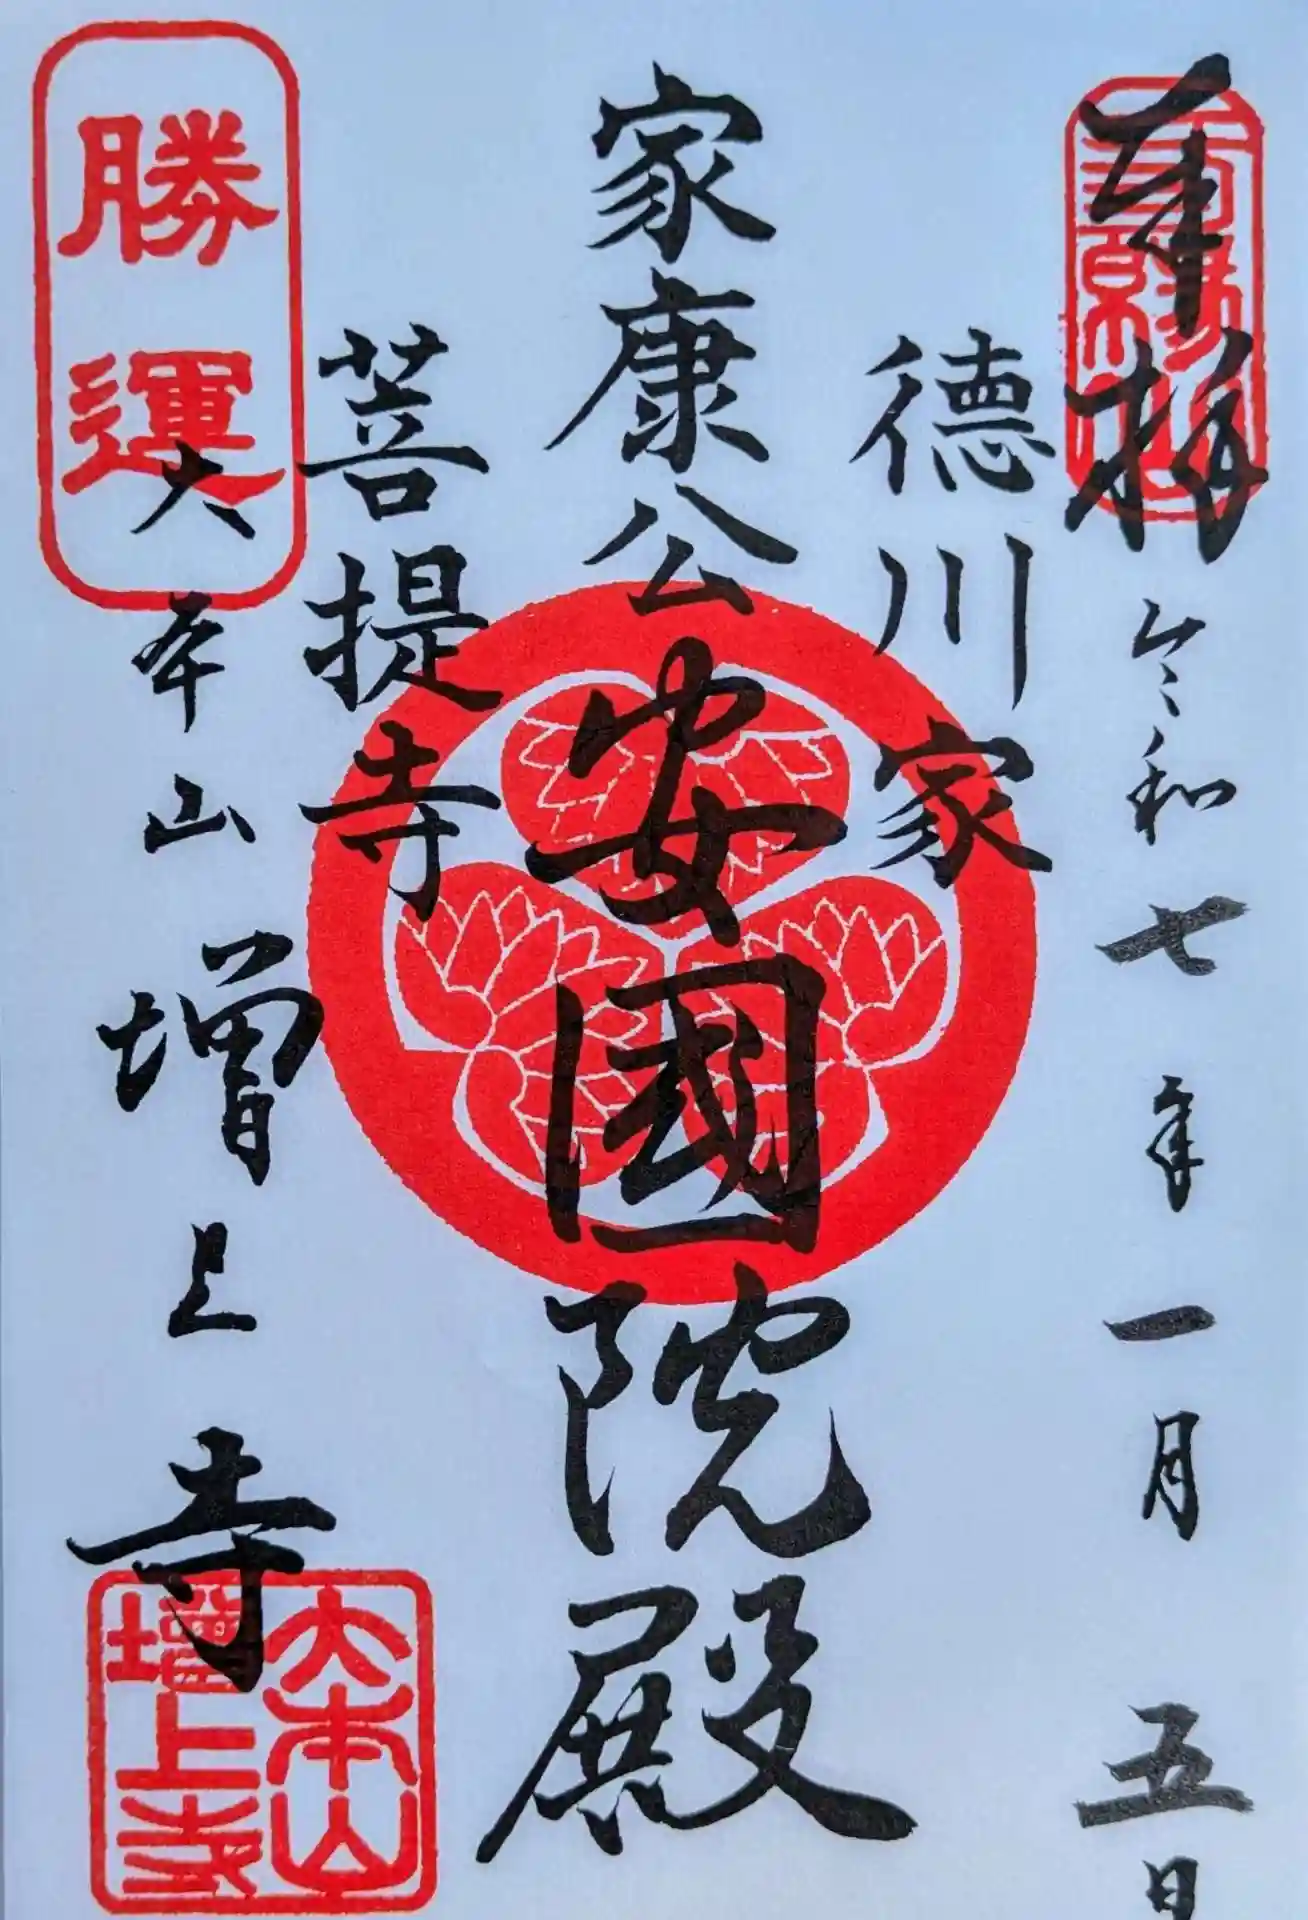 奉拝
令和七年一月五日
徳川家
家康公
安國院殿
菩提寺
勝運
大本山増上寺
大本山
增上寺